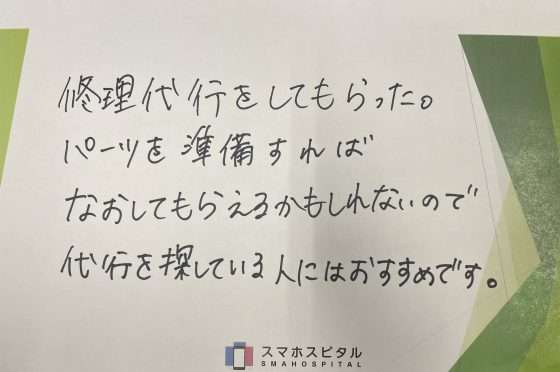 修理代行をしてもらった。
パーツを準備すれば
なおしてもらえるかもしれないので
代行を探している人にはおすすめです。
スマホスピタル
SMAHOSPITAL